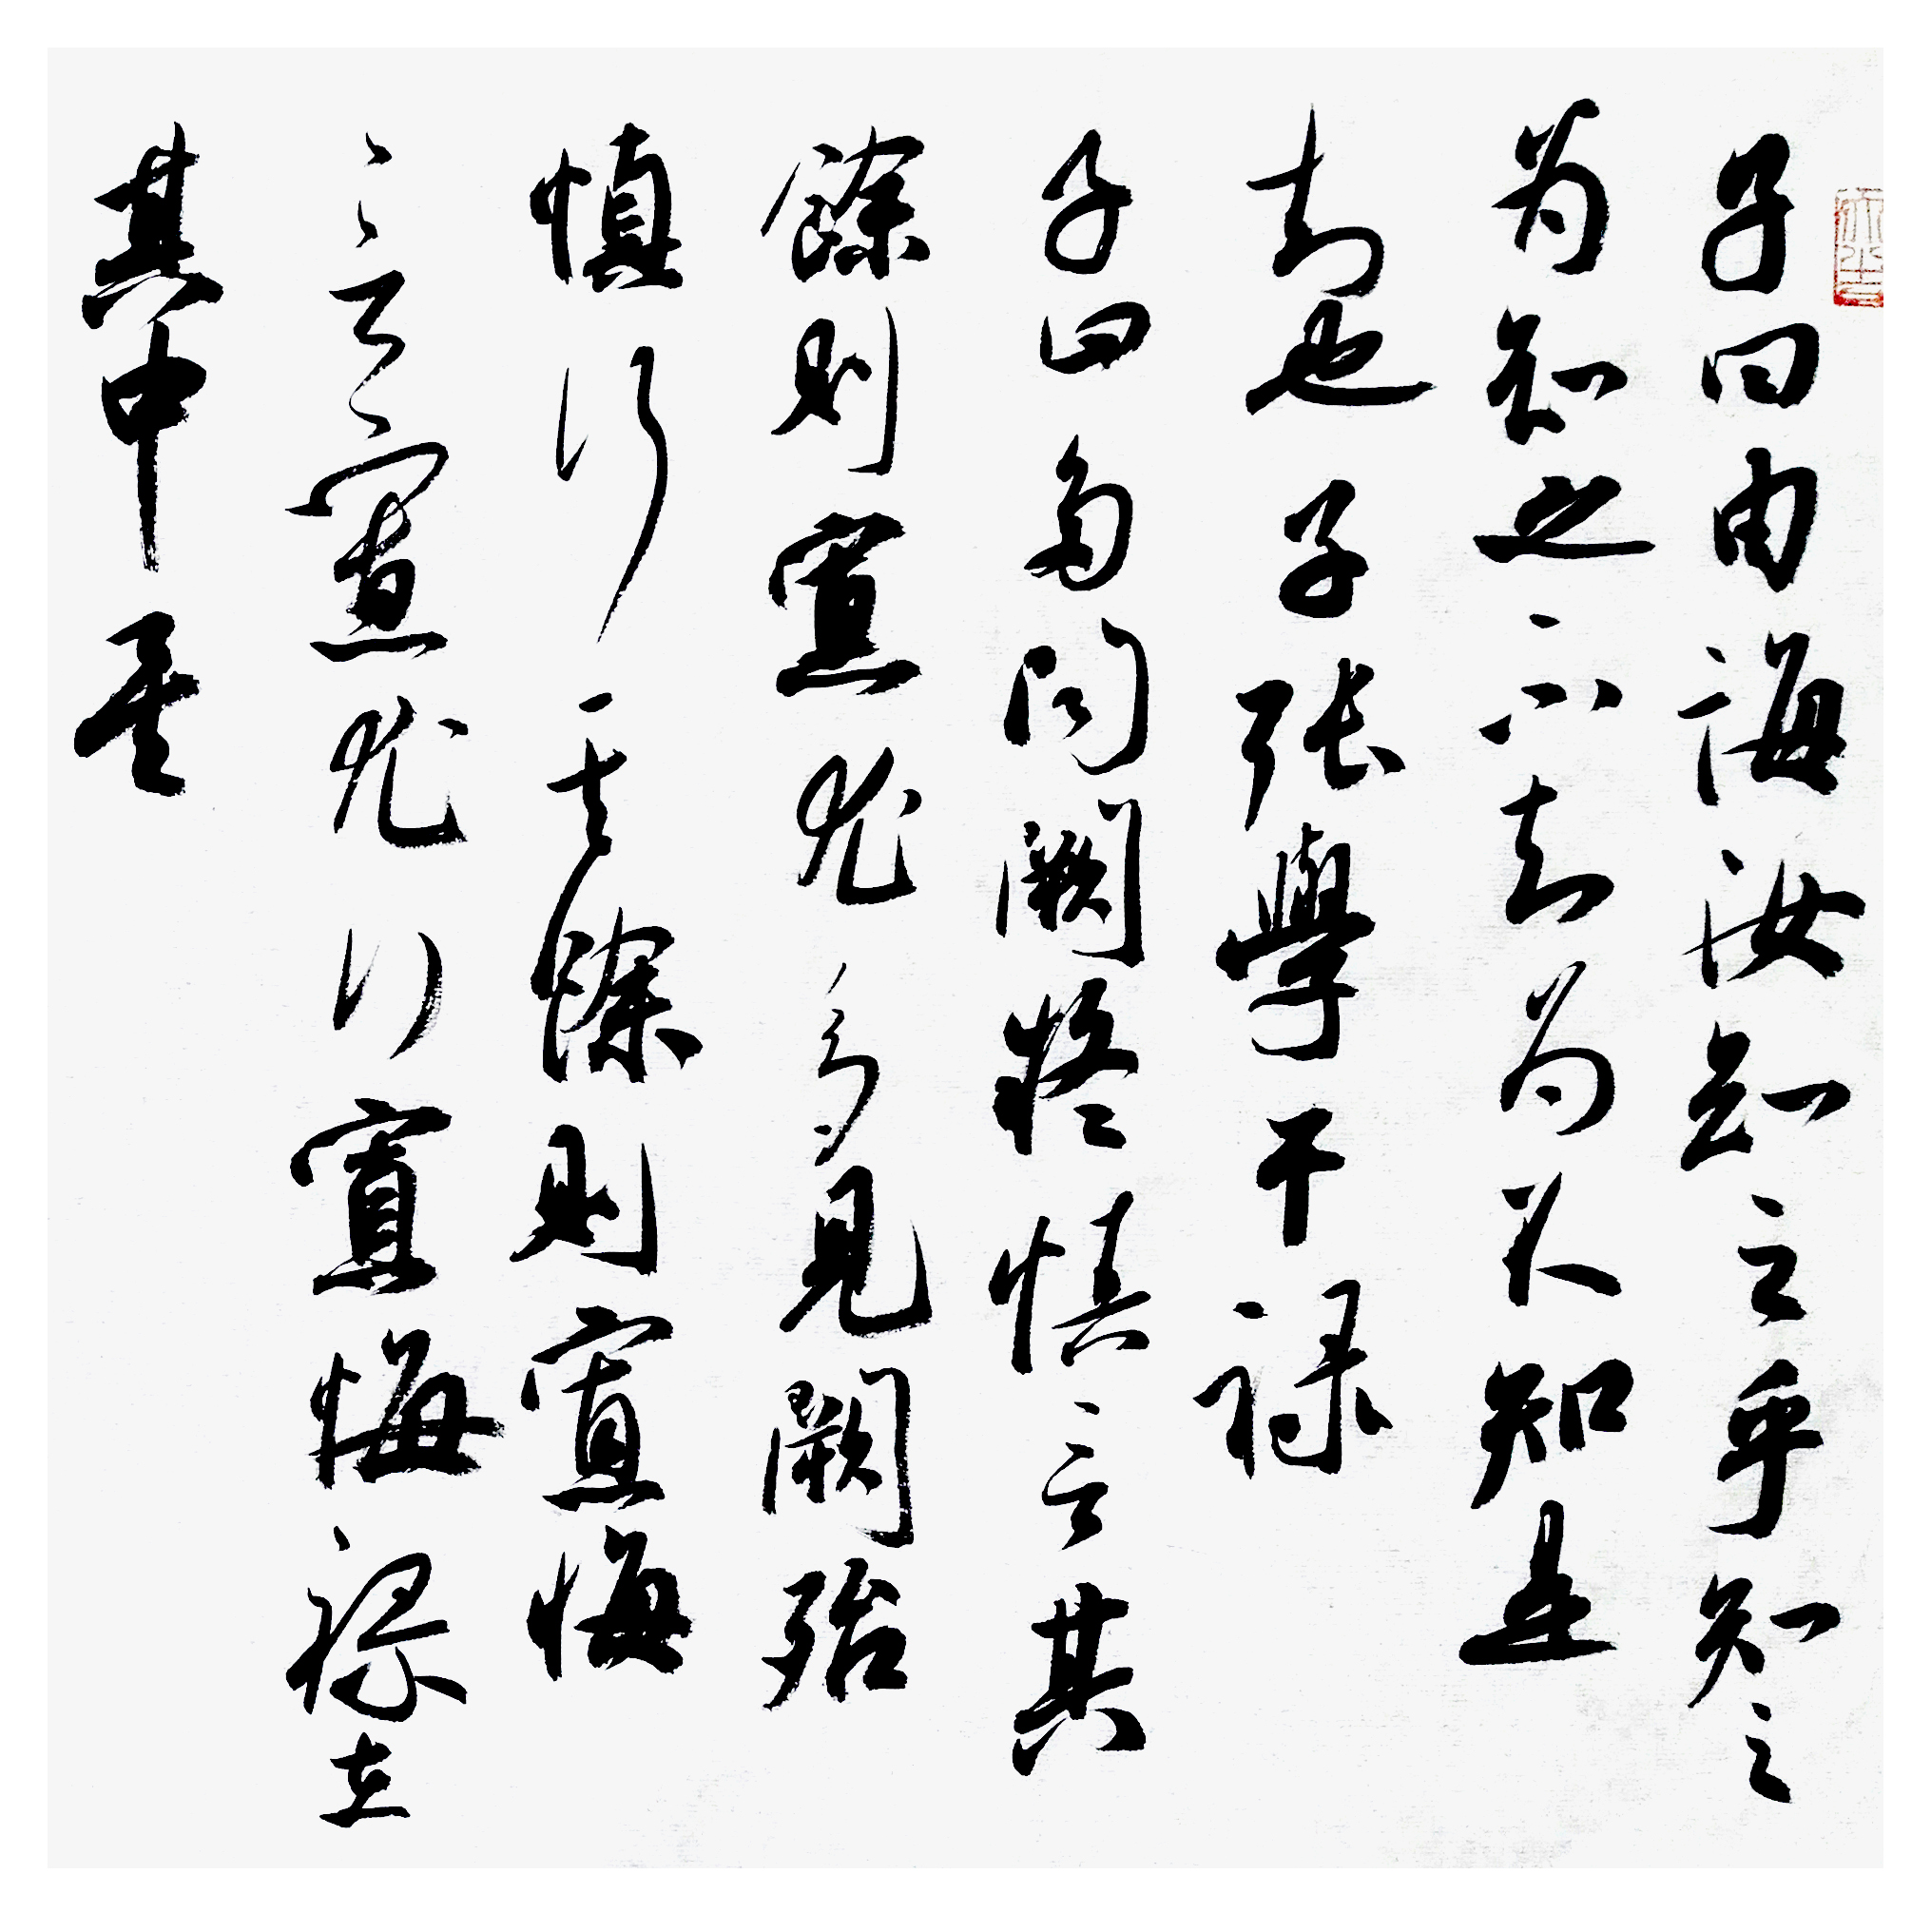 子曰由誨汝知之乎知之
为知之不知为不知是
知也子張學干祿
子曰多闻闕疑慎言其
餘則寡尤多見闕殆
慎行其餘則寡悔
言寡尤行寡悔祿在
其中矣